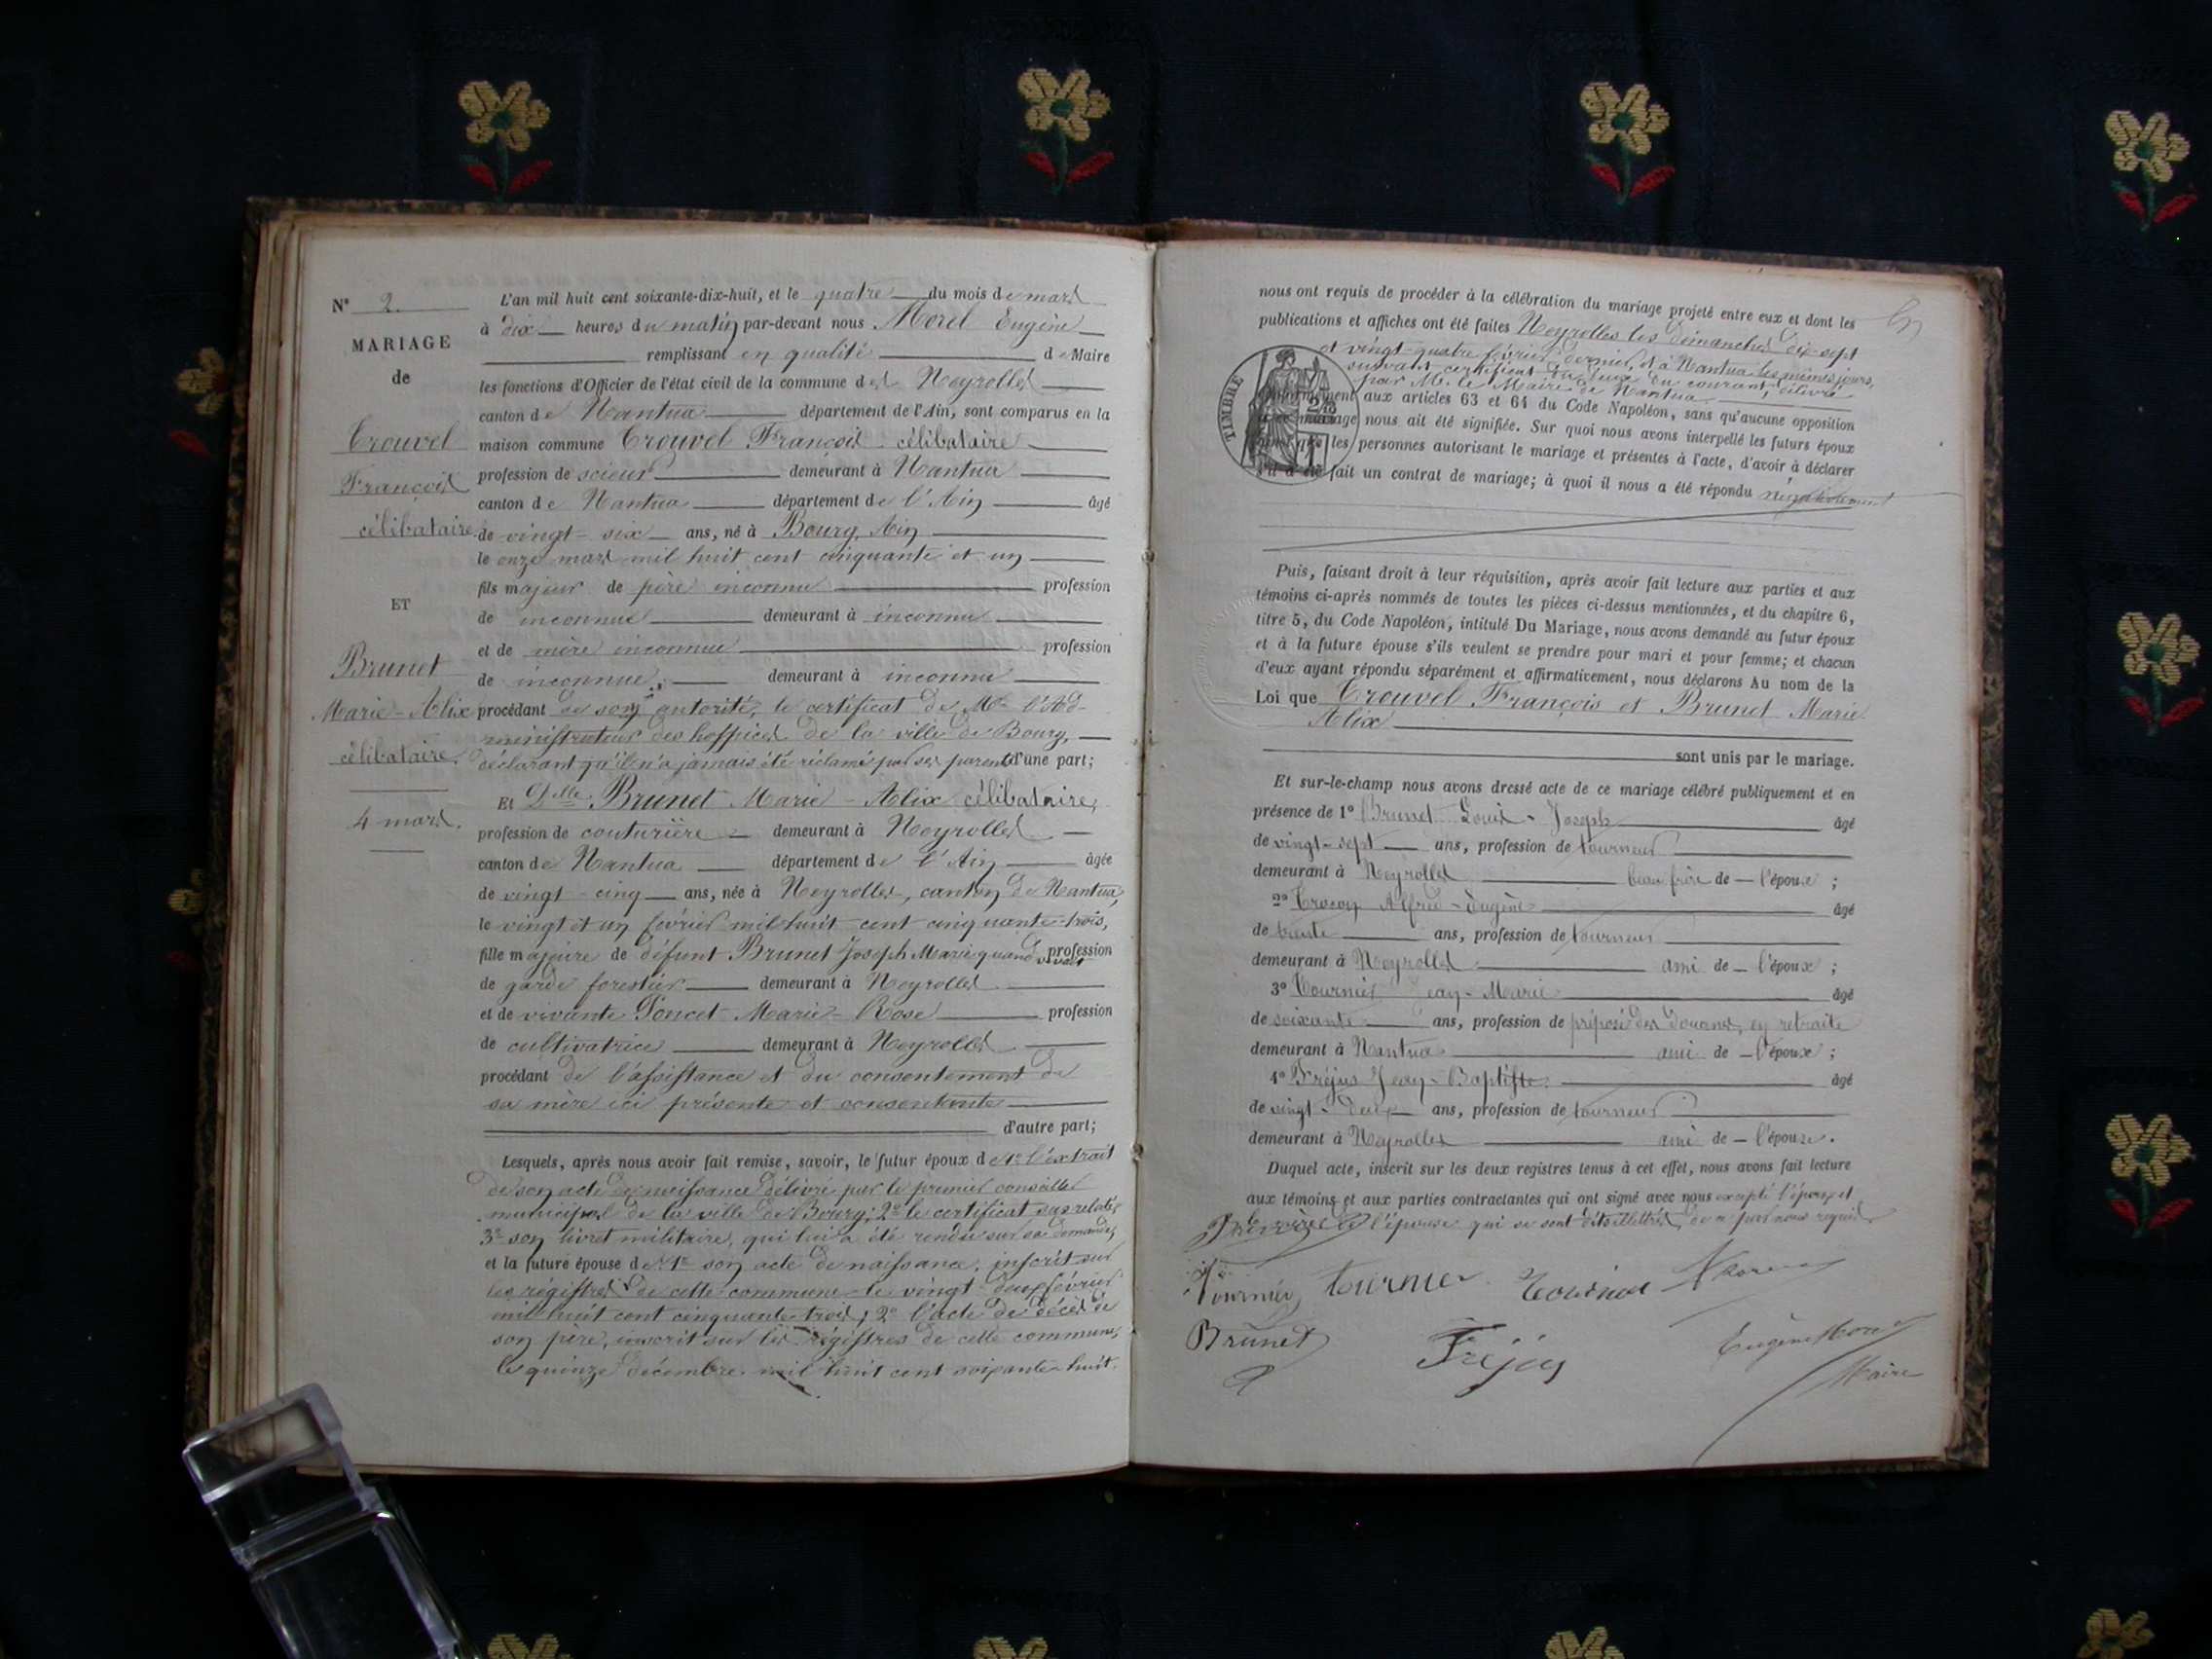 N° 2.
MARIAGE
de
Trouvel
François
célibataire
ET
Brunet
Marie-Alix
célibataire.
4 mars.
L'an mil huit cent soixante-dix-huit, et le quatre du mois de mars
à dix heures du matin par-devant nous Morel Eugène
remplissant en qualité de Maire
les fonctions d'Officier de l'état civil de la commune des Neyrolles
canton de Nantua département de l'Ain, sont comparus en la
maison commune Trouvel François célibataire
profession de scieur demeurant à Nantua
canton de Nantua département de l'Ain âgé
de vingt-six ans, né à Bourg, Ain
le onze mars mil huit cent cinquante et un
fils majeur de père inconnu profession
de inconnue demeurant à inconnu
et de mère inconnue profession
de inconnue demeurant à inconnu
procédant de son autorité, le certificat de Mr l'Ad-
ministrateur des hospices de la ville de Bourg,
déclarant qu'il n'a jamais été réclamé par ses parents d'une part;
Et Dlle Brunet Marie-Alix célibataire,
profession de couturière demeurant à Neyrolles
canton de Nantua département de l'Ain âgée
de vingt-cinq ans, née à Neyrolles, canton de Nantua,
le vingt et un février mil huit cent cinquante-trois,
fille majeure de défunt Brunet Joseph Marie quand vivait profession
de garde forestier demeurant à Neyrolles
et de vivante Poncet Marie-Rose profession
de cultivatrice demeurant à Neyrolles
procédant de l'assistance et du consentement de
sa mère ici présente et consentante
d'autre part;
Lesquels, après nous avoir fait remise, savoir, le futur époux de 1° l'extrait
de son acte de naissance délivré par le premier conseiller
municipal de la ville de Bourg; 2° le certificat susrelaté;
3° son livret militaire, qui lui a été rendu sur sa demande,
et la future épouse de 1° son acte de naissance, inscrit sur
les régistres de cette commune le vingt-deux février
mil huit cent cinquante-trois; 2° l'acte de décès de
son père, inscrit sur les régistres de cette commune,
le quinze décembre mil huit cent soixante-huit.
nous ont requis de procéder à la célébration du mariage projeté entre eux et dont les
publications et affiches ont été faites Neyrolles les dimanches dix-sept
et vingt-quatre février dernier, et à Nantua les mêmes jours,
suivant certificat du deux du courant, délivré
par M. le Maire de Nantua
TIMBRE
conformément aux articles 63 et 64 du Code Napoléon, sans qu'aucune opposition
mariage nous ait été signifiée. Sur quoi nous avons interpellé les futurs époux
que les personnes autorisant le mariage et présentes à l'acte, d'avoir à déclarer
s'il a été fait un contrat de mariage; à quoi il nous a été répondu négativement
Puis, faisant droit à leur réquisition, après avoir fait lecture aux parties et aux
témoins ci-après nommés de toutes les pièces ci-dessus mentionnées, et du chapitre 6,
titre 5, du Code Napoléon, intitulé Du Mariage, nous avons demandé au futur époux
et à la future épouse s'ils veulent se prendre pour mari et pour femme; et chacun
d'eux ayant répondu séparément et affirmativement, nous déclarons Au nom de la
Loi que Trouvel François et Brunet Marie
Alix
sont unis par le mariage.
Et sur-le-champ nous avons dressé acte de ce mariage célébré publiquement et en
présence de 1° Brunet Louis-Joseph âgé
de vingt-sept ans, profession de tourneur
demeurant à Neyrolles beau frère de l'époux;
2° Alfred-Eugène âgé
de trente ans, profession de tourneur
demeurant à Neyrolles ami de l'époux;
3° Tournier Jean-Marie âgé
de soixante ans, profession de préposé des douanes, en retraite
demeurant à Nantua ami de l'époux;
4° Fréjus Jean-Baptiste âgé
de vingt-deux ans, profession de tourneur
demeurant à Neyrolles ami de l'épouse.
Duquel acte, inscrit sur les deux registres tenus à cet effet, nous avons fait lecture
aux témoins et aux parties contractantes qui ont signé avec nous excepté l'époux et
la mère de l'épouse qui se sont dits illettrés, de ce par nous requis
Tournier
Brunet
Fréjus
Eugène Morel
Maire